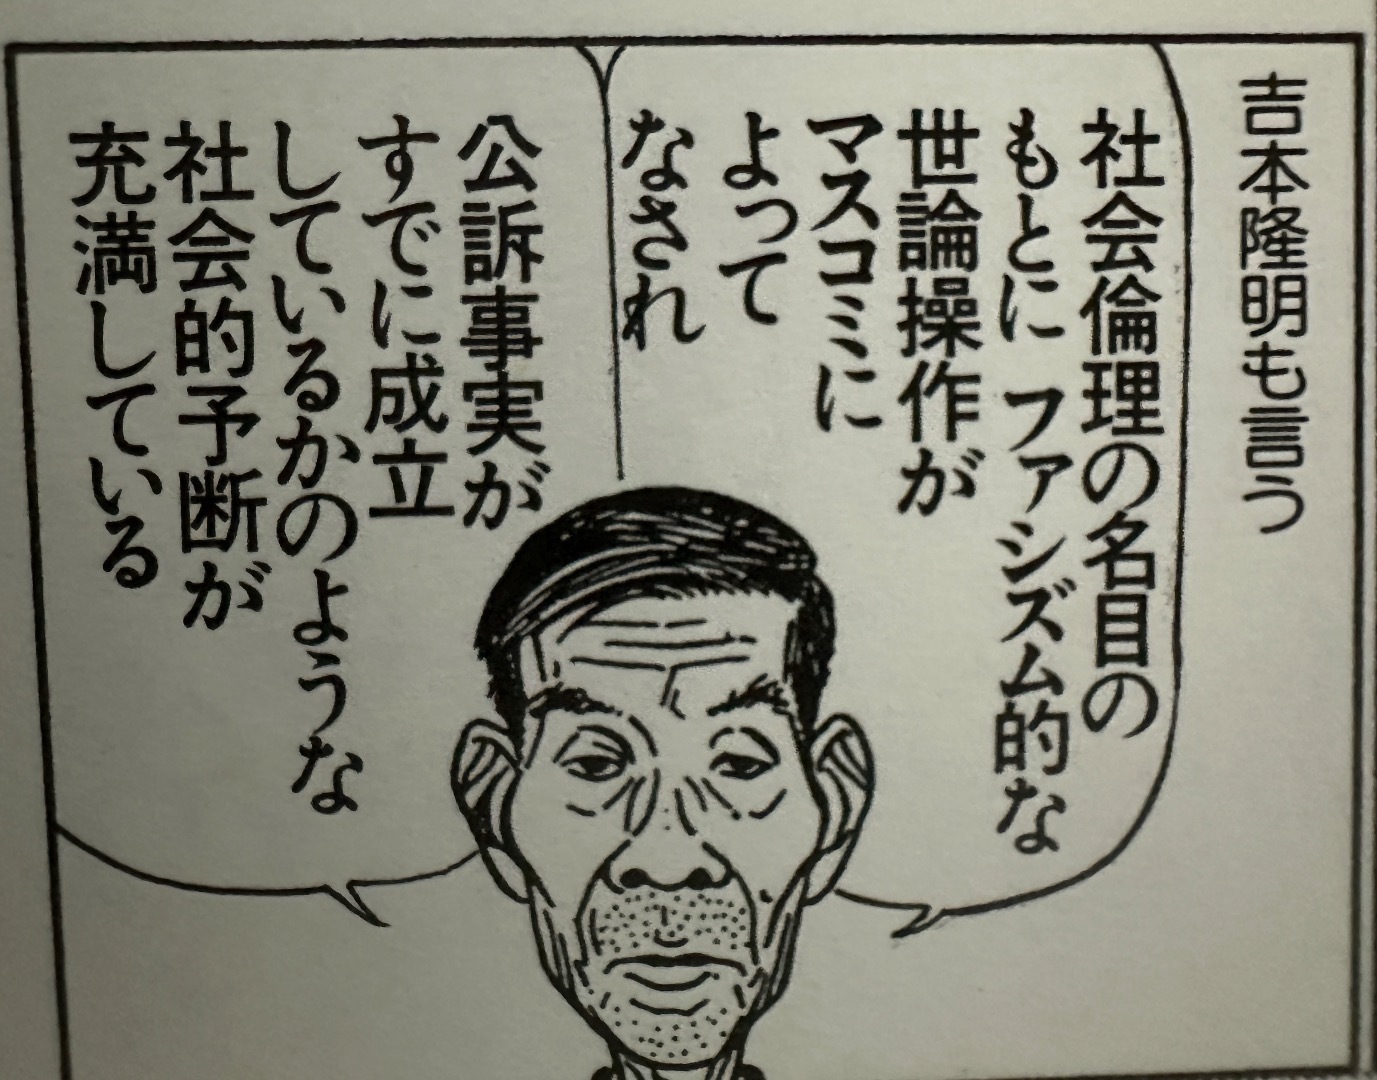 吉本隆明も言う
社会倫理の名目の
もとに ファシズム的な
世論操作が
マスコミに
よって
なされ
公訴事実が
すでに成立
しているかのような
社会的予断が
充満している